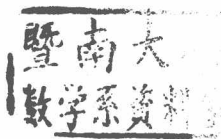 暨南大
数学系資料